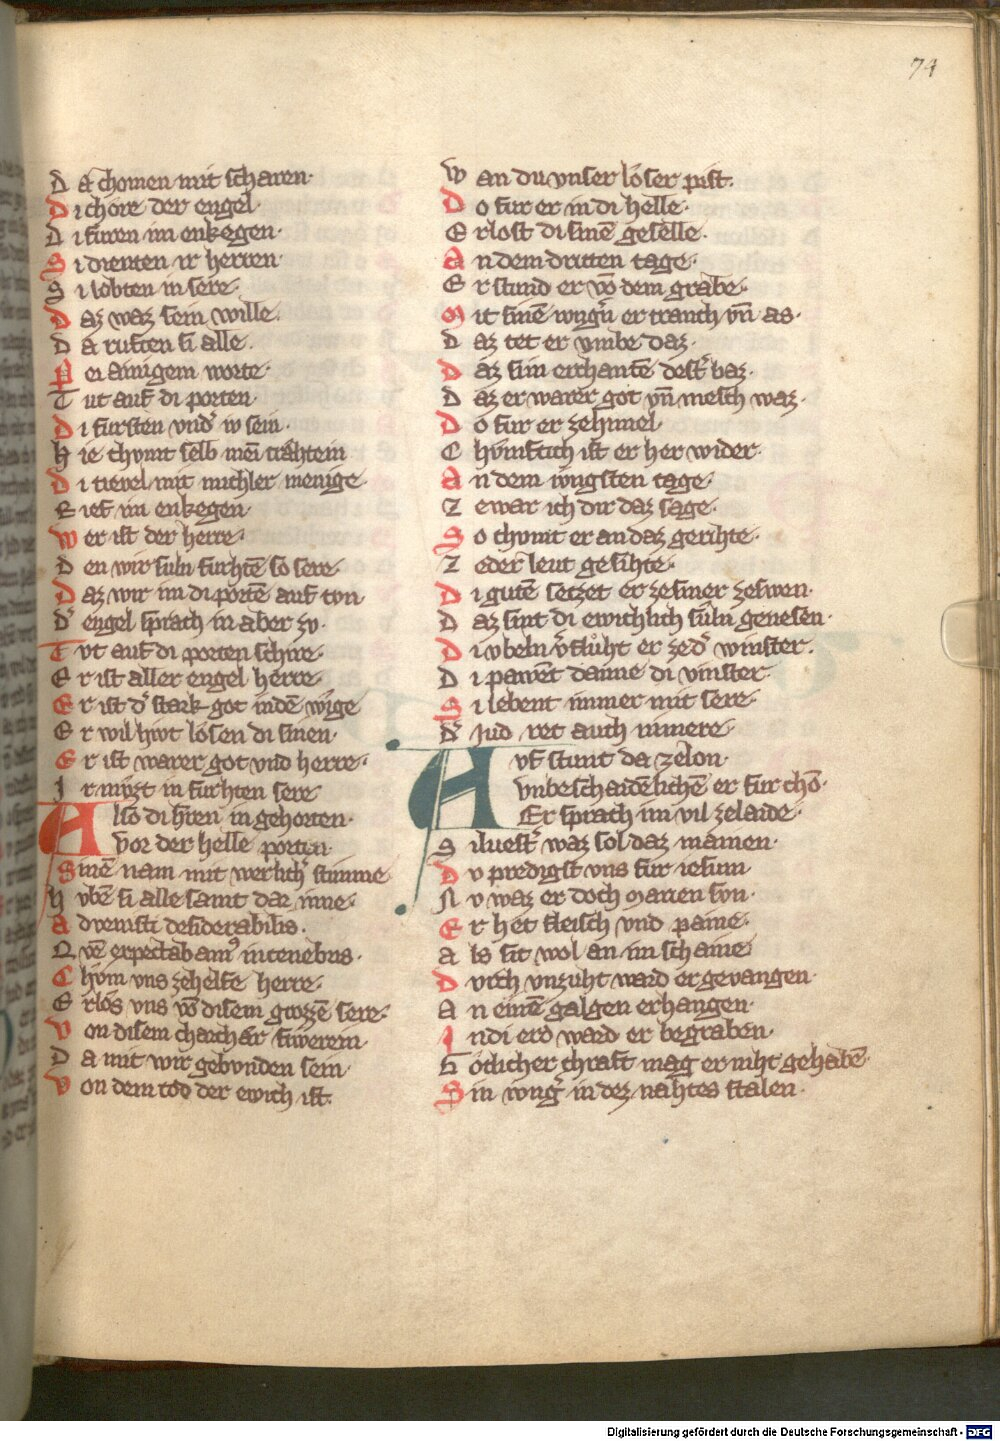 74
D a chomen mit scharen·
D i chore der engel·
D i furen im enkegen·
S i dienten ir herren
S i lobten in sere·
D az waz sein wille·
D a ruften si alle·
P ei ainigem worte·
T ut auf di porten·
D i fursten vnd' iv sein·
H ie chvmt selb men̄ trahtein
D i tievel mit michler menige·
R ief im enkegen·
W er ist der herre·
D en wir suln furhtē so sere·
D az wir im di portē auf tvn·
D' engel sprach in aber zv·
T vt auf di porten schire·
E r ist aller engel herre·
E r ist d' stark got in dē wige
E r wil hivt losen di sinen·
E r ist warer got vnd herre·
I r mvzt in furhten sere
A lso di h'ren in gehorten·
vor der helle porten·
S inē nam mit werlich' stimme
H vbē si alle samt dar inne·
A dvenisti desiderabilis·
Q vē expectabam⁹ in tenebris·
C hvm vns zehelfe herre·
E rlos vns vō disem grozzē sere·
V on disem charchær swerein·
D a mit wir gebvnden sein·
V on dem tod der ewich ist·
W an du vnser loser pist·
D o fur er in di helle·
E rlost di sinē geselle·
A n dem dritten tage·
E r stund er vō dem grabe·
M it sinē ivng'n er tranch vn̄ as·
D az tet er vmbe daz·
D az si in erchantē dest' baz·
D az er warer got vn̄ mensch waz·
D o fur er ze himel
C hvmftich ist er her wider·
A n dem ivngsten tage·
Z ewar ich dir daz sage·
S o chvmt er an daz gerihte·
Z eder leut gesihte·
D i gutē setzet er ze siner zeswen·
D az sint di ewichlich suln genesen·
D i vbeln v'flůht er ze d' winster·
D i pawent danne di vinster·
S i lebent immer mit sere·
D' Jud ret auch mmere·
A vf stunt da zelon·
vnbeschaidēlichē er fur chō·
Er sprach im vil zelaide·
S iluest' waz sol daz mainen·
D v predigst vns fur iesum
N v waz er doch Marien svn·
E r het fleisch vnd paine·
A ls sit wol an im schaine
D vrch vnzuht ward er gevangen·
A n einē galgen erhangen·
I n di erd ward er begraben·
G otlicher chraft mag er niht gehabē·
S in ivng' in dez nahtes stalen·
Digitalisierung gefördert durch die Deutsche Forschungsgemeinschaft - DFG